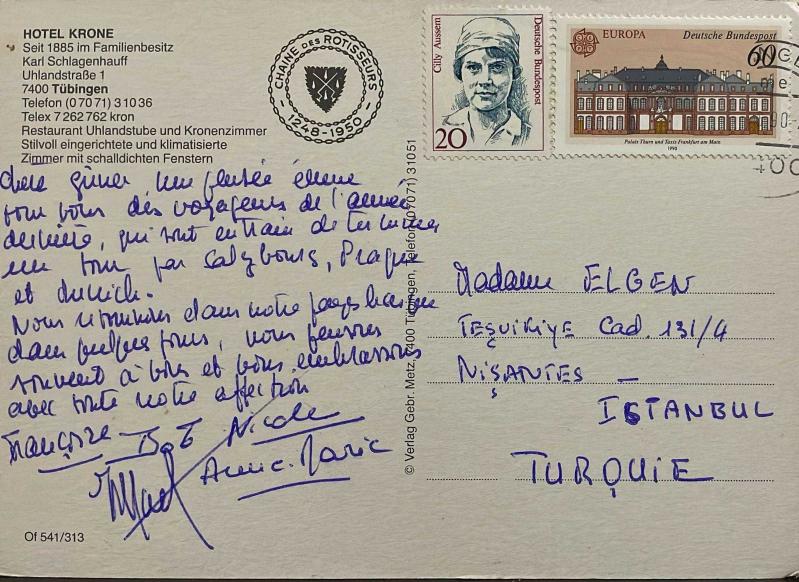 HOTEL KRONE
Seit 1885 im Familienbesitz
Karl Schlagenhauff
Uhlandstraße 1
7400 Tübingen
Telefon (0 70 71) 3 10 36
Telex 7 262 762 kron
Restaurant Uhlandstube und Kronenzimmer
Stilvoll eingerichtete und klimatisierte
Zimmer mit schalldichten Fenstern
CHAINE DES ROTISSEURS
1248-1950
Cilly Aussem
Deutsche Bundespost
20
EUROPA
Deutsche Bundespost
60
Palais Thurn und Taxis Frankfurt am Main
1990
Chère une pensée émue
pour vous des voyageurs de l'année
dernière, qui sont en train de terminer
un tour par Salzbourg, Prague
et Munich.
Nous retournons dans notre pays basque
dans quelques jours, nous pensons
souvent à vous et vous embrassons
avec toute notre affection
Françoise Nicole
Annie-Marie
© Verlag Gebr. Metz, 7400 Tübingen, Telefon (0 70 71) 3 10 51
Madame ELGEN
TEŞVIKIYE Cad. 131/4
NIŞANTES —
ISTANBUL
TURQUIE
Of 541/313